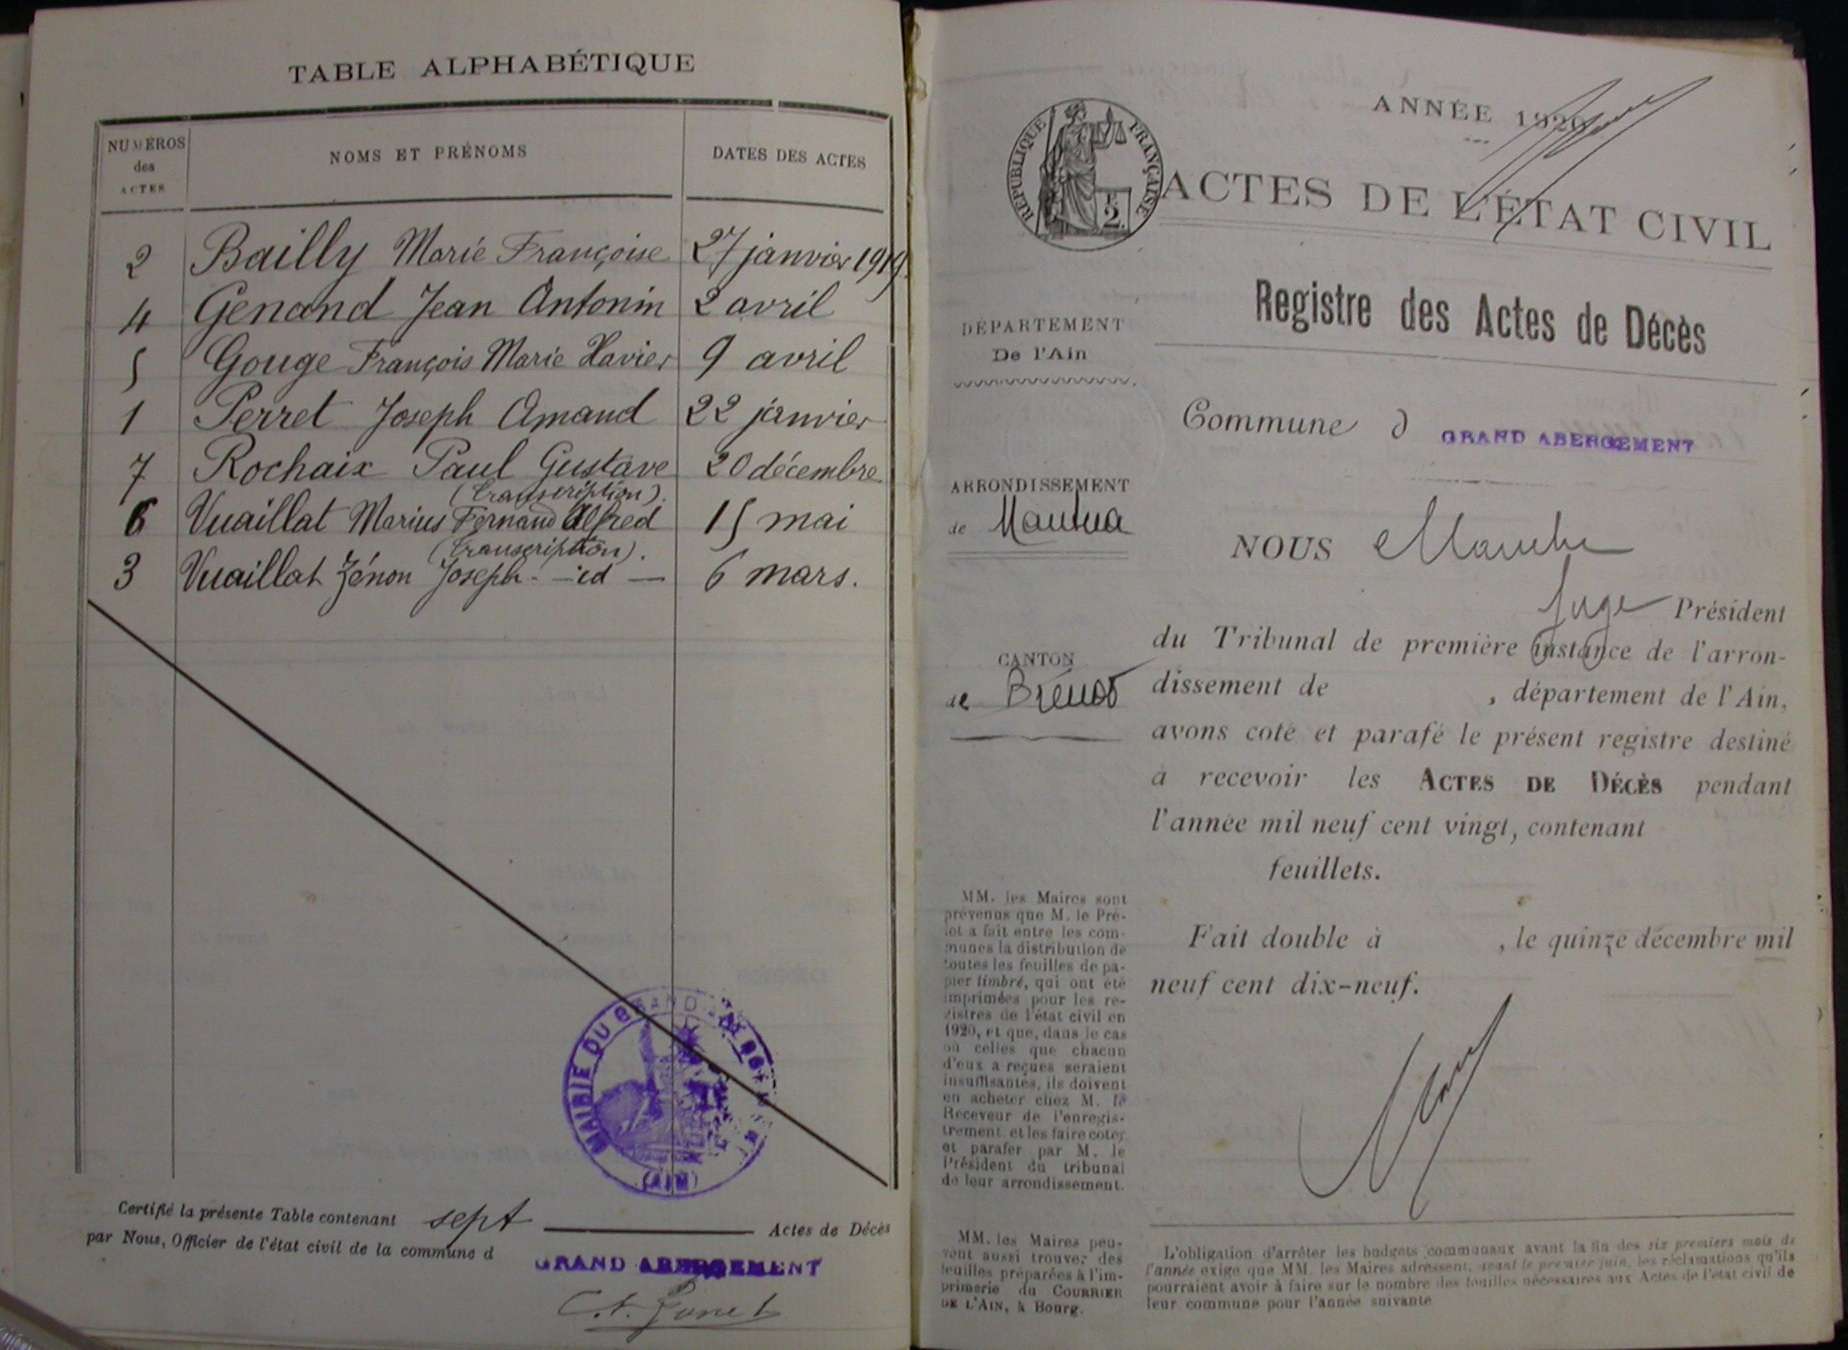 TABLE ALPHABÉTIQUE
NUMÉROS des ACTES
NOMS ET PRÉNOMS
DATES DES ACTES
2 Bailly Marie Françoise 27 janvier 1919
4 Genand Jean Antonin 2 avril
5 Gouge François Marie Xavier 9 avril
1 Perret Joseph Amand 22 janvier
7 Rochaix Paul Gustave 20 décembre
(transcription).
6 Vuaillat Marius Fernand Alfred 15 mai
(transcription).
3 Vuaillat Zénon Joseph - id - 6 mars.
MAIRIE DU GRAND
(AIN)
Certifié la présente Table contenant sept Actes de Décès
par Nous, Officier de l'état civil de la commune d GRAND ABERGEMENT
ANNÉE 1920
RÉPUBLIQUE FRANÇAISE
ACTES DE L'ÉTAT CIVIL
Registre des Actes de Décès
DÉPARTEMENT
De l'Ain
Commune d GRAND ABERGEMENT
ARRONDISSEMENT
de Nantua
NOUS
Juge Président
du Tribunal de première instance de l'arron-
CANTON
de Brénod
dissement de , département de l'Ain,
avons coté et parafé le présent registre destiné
à recevoir les ACTES DE DÉCÈS pendant
l'année mil neuf cent vingt, contenant
feuillets.
Fait double à , le quinze décembre mil
neuf cent dix-neuf.
MM. les Maires sont
prévenus que M. le Pré-
fet a fait entre les com-
munes la distribution de
toutes les feuilles de pa-
pier timbré, qui ont été
imprimées pour les re-
gistres de l'état civil en
1920, et que, dans le cas
où celles que chacun
d'eux a reçues seraient
insuffisantes, ils doivent
en acheter chez M. le
Receveur de l'enregis-
trement et les faire coter
et parafer par M. le
Président du tribunal
de leur arrondissement.
MM. les Maires peu-
vent aussi trouver des
feuilles préparées à l'im-
primerie du COURRIER
DE L'AIN, à Bourg.
L'obligation d'arrêter les budgets communaux avant la fin des six premiers mois de
l'année exige que MM. les Maires adressent, avant le premier juin, les réclamations qu'ils
pourraient avoir à faire sur le nombre des feuilles nécessaires aux Actes de l'état civil de
leur commune pour l'année suivante